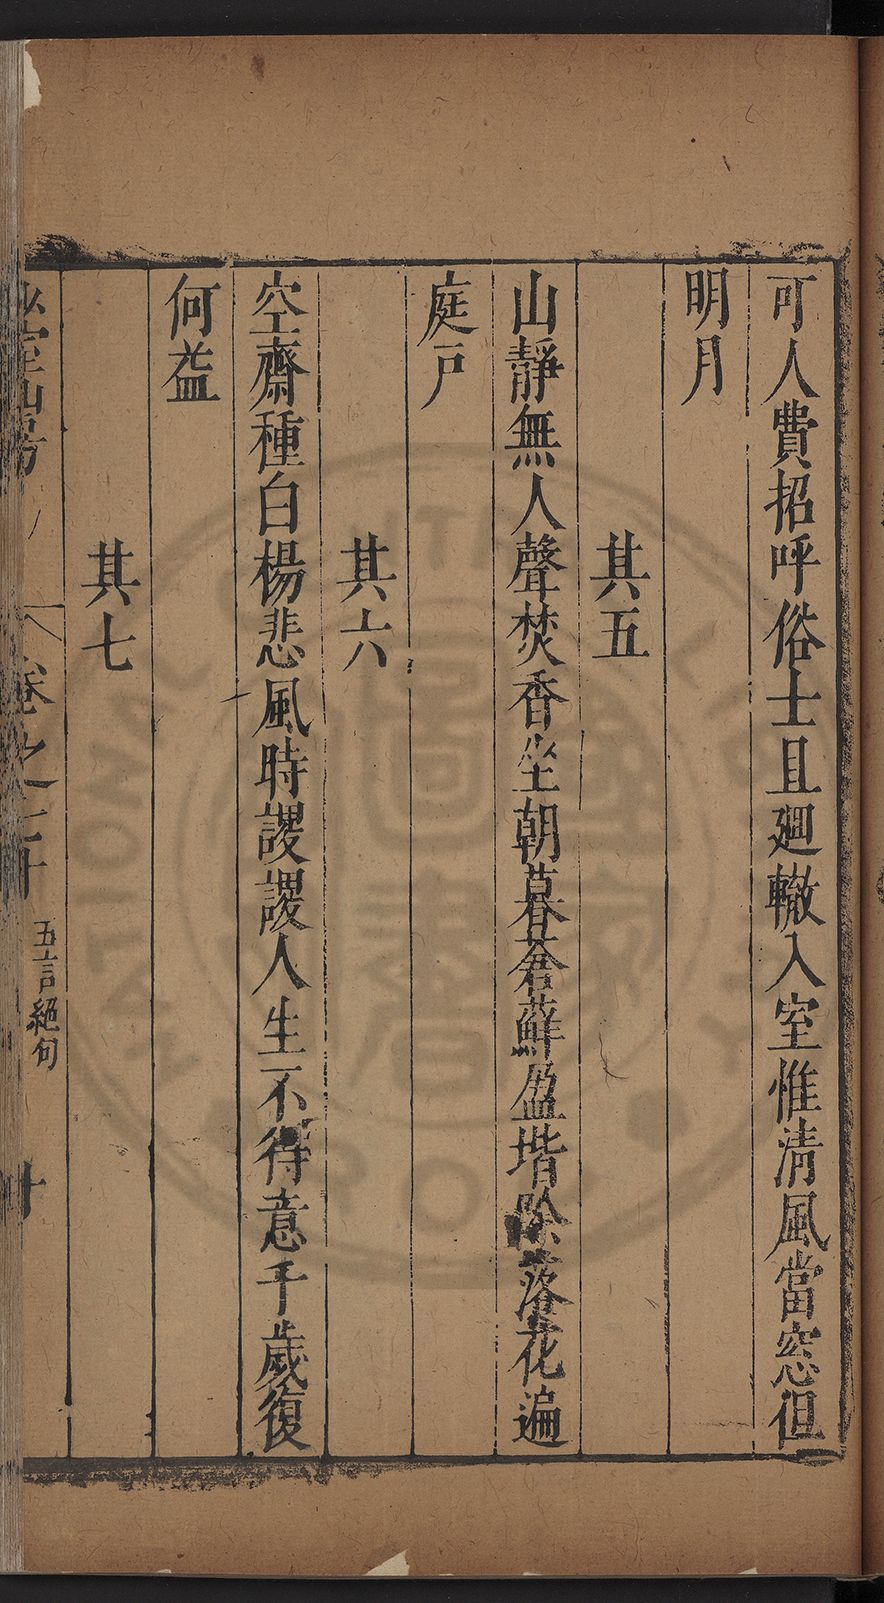 可人費招呼俗士且廻轍入室惟清風當窓但
明月
其五
山靜無人聲焚香坐朝暮蒼蘚盈堦除落花遍
庭戶
其六
空齋種白楊悲風時謖謖人生不得意千歲復
何益
其七
卷之二十
五言絕句